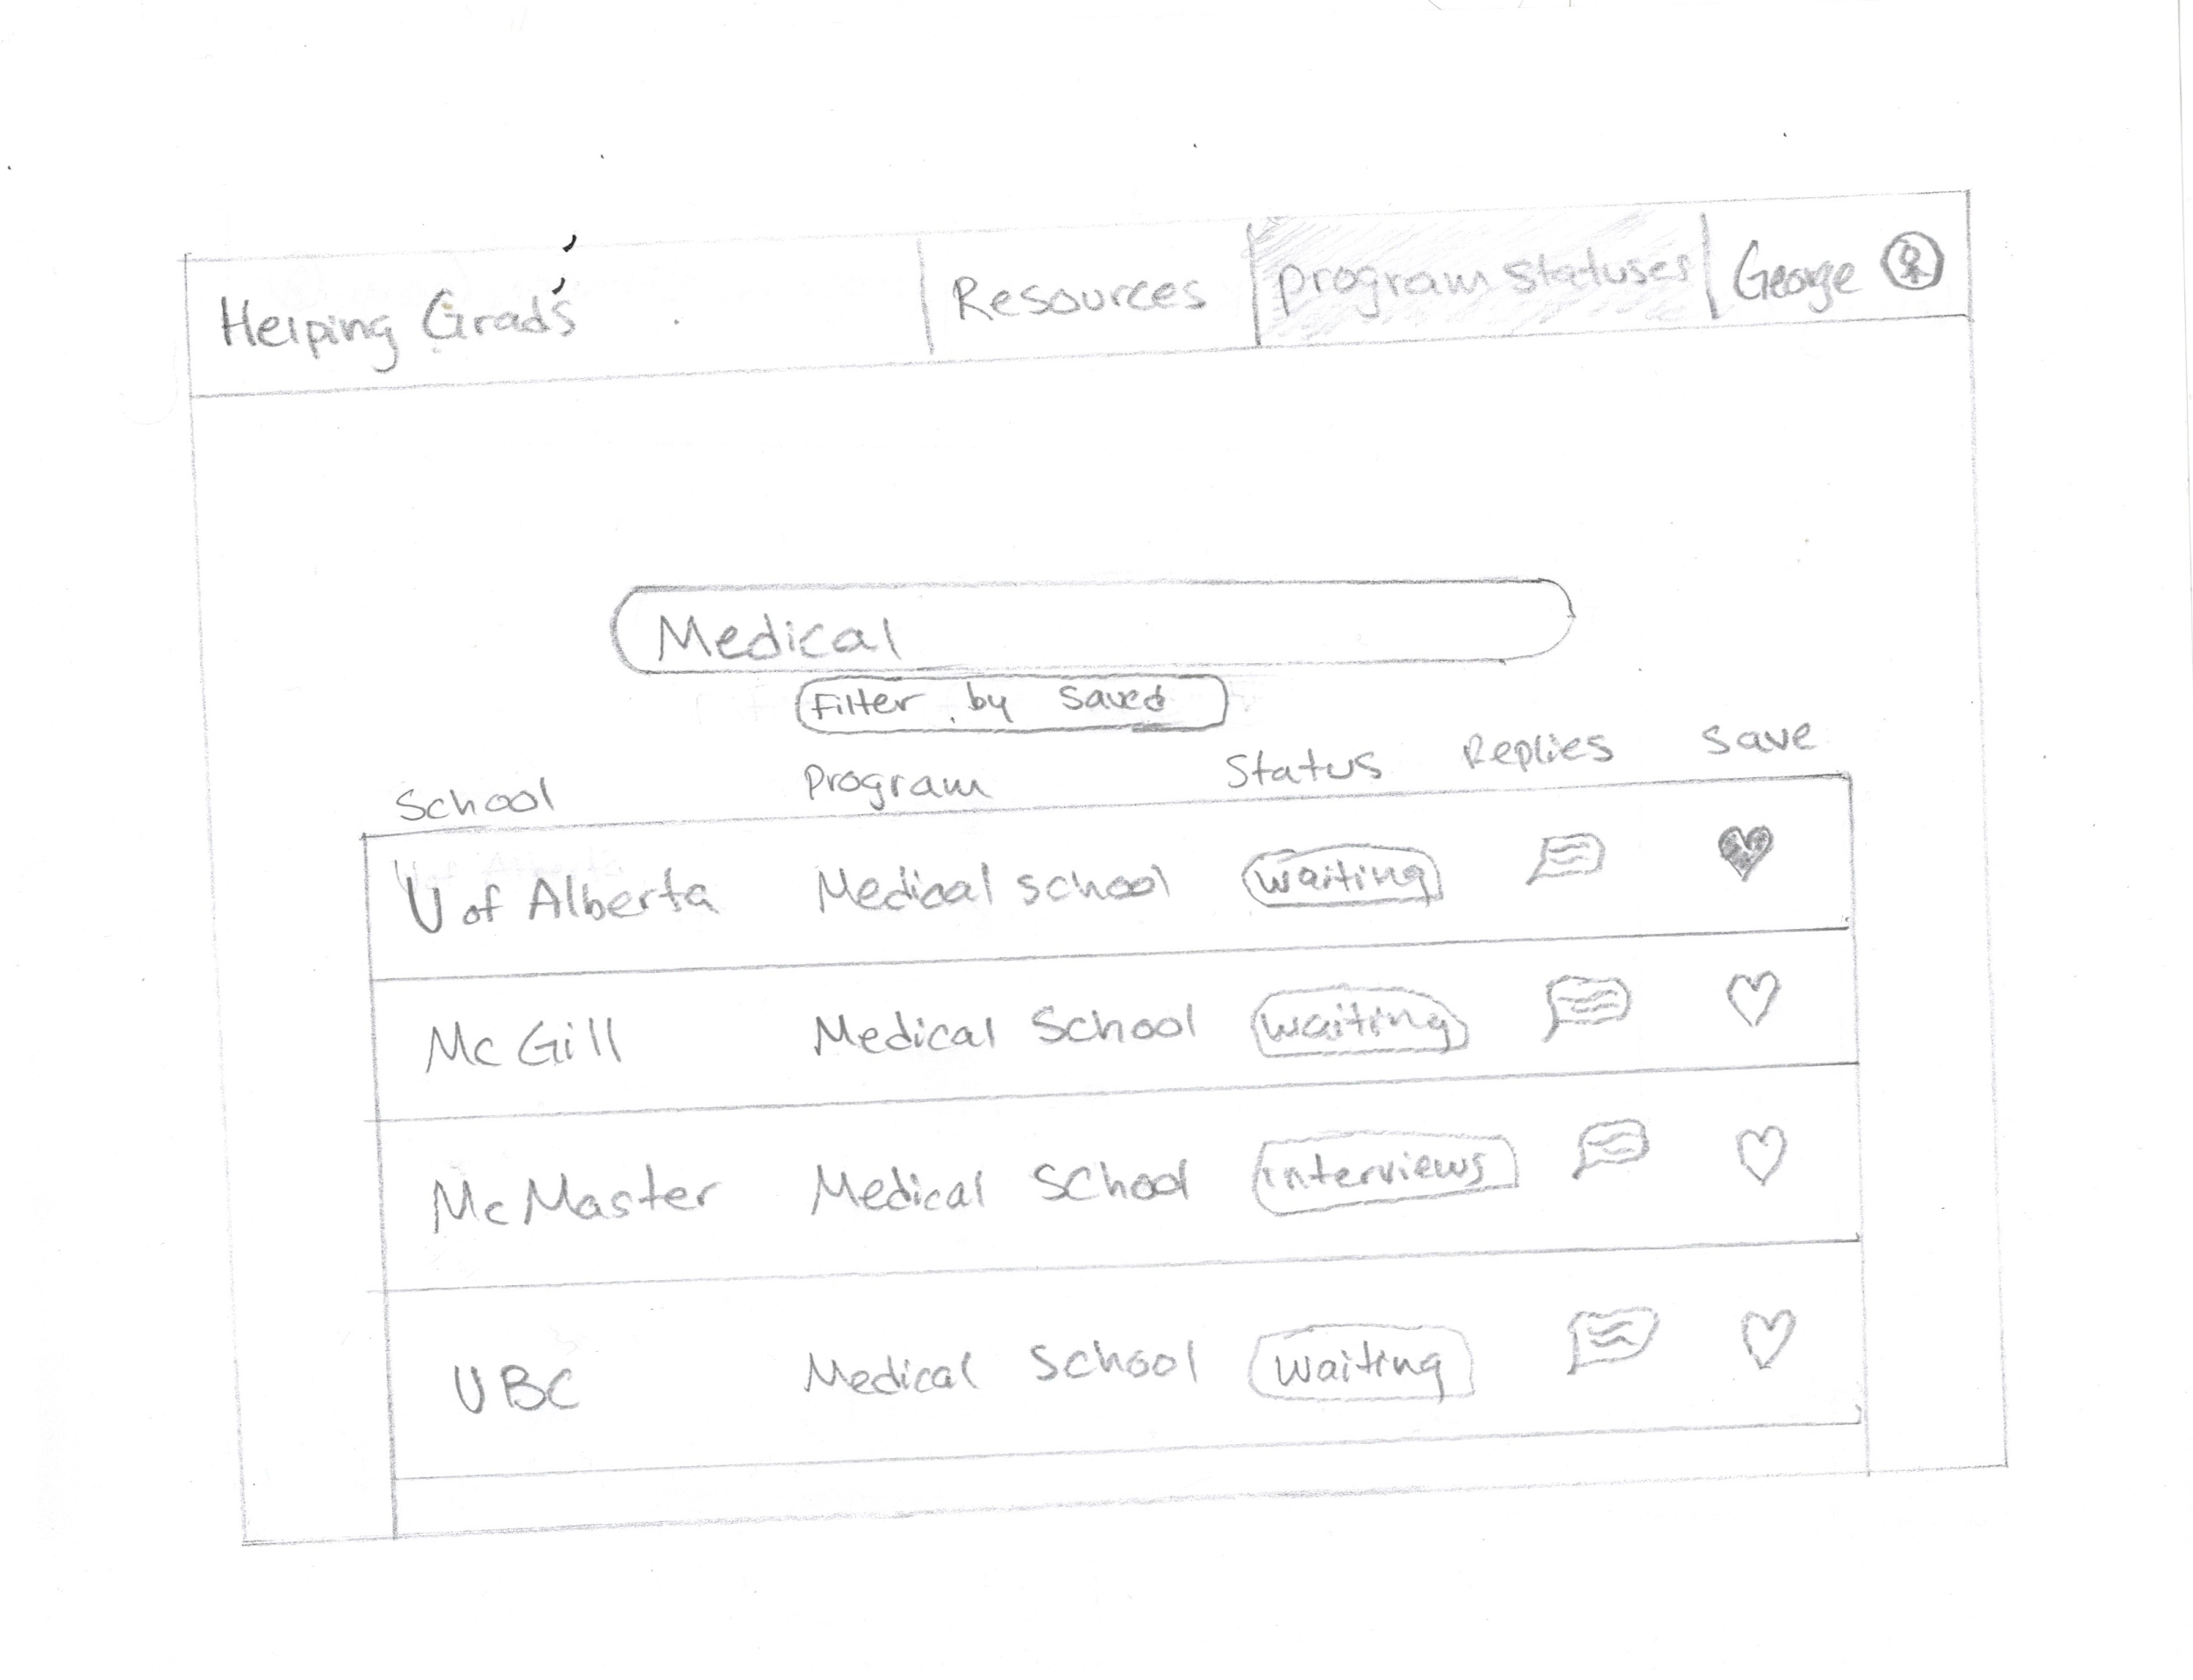 Helping Grad's Resources program statuses George
Medical
Filter by saved
School program Status Replies save
U of Alberta Medical school waiting
McGill Medical School waiting
McMaster Medical School interviews
UBC Medical School waiting